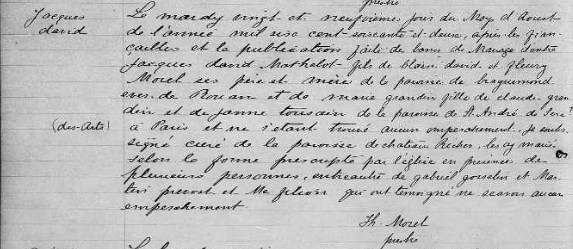 prestre
Jacques
david
Le mardy vingt et neufviéme jour du Moys d'Aoust
de l'année mil sise cent soixante et deux, aprés les fian-
çailles et la publication faite de bans de Mariage d'entre
Jacques david Mathalot fils de blaise david et fleury
Morel ses père et mère de la paroisse de braquemond
eves. de Roüan et de marie grandin fille de claude gran
din et de Janne toussain de la paroisse de St André
(des-Arts)
à Paris et ne s'etant trouvé aucun empeschement, Je soubs
signé curé de la paroisse de chateau Richer, les ay mariés
selon la forme prescripte par l'église en presence de
plusieurs personnes, entreautre de gabriel gosselin et Mar
tin prevost et Me filion qui ont temoigné ne scavoir aucun
empeschement
Th. Morel
prestre